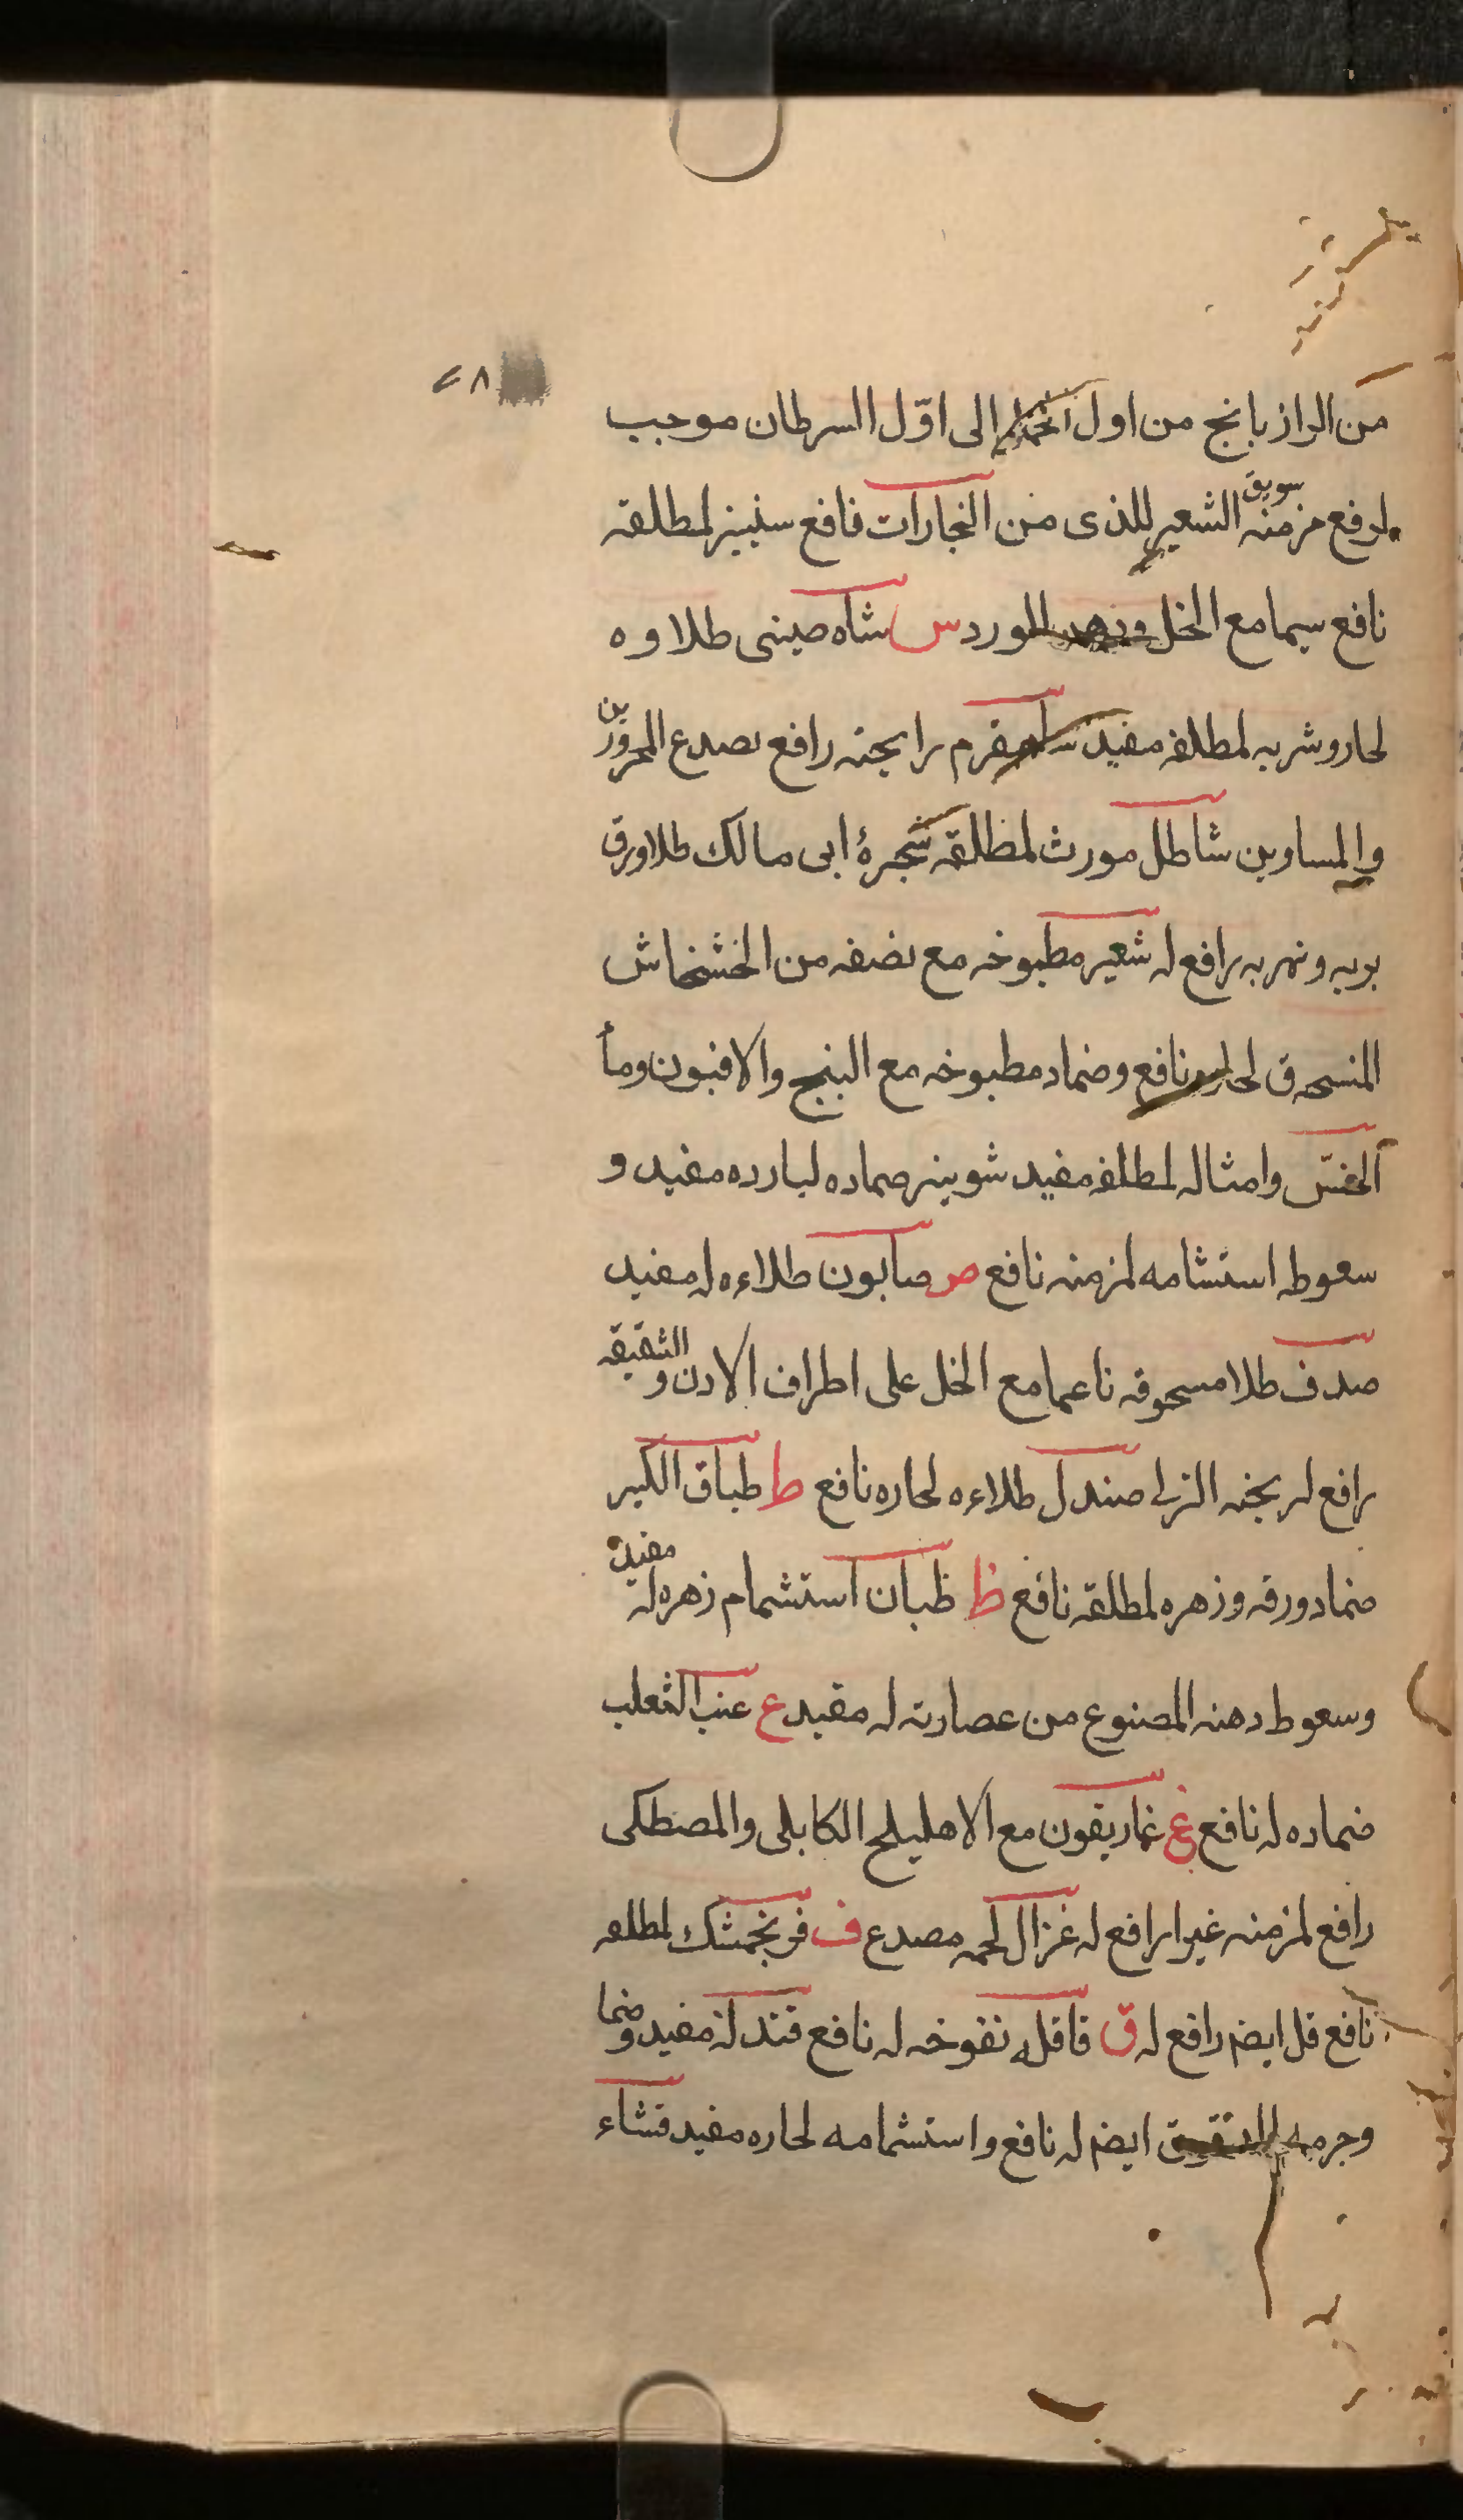 ٢٨
من الرازيانج من اول الحمل الى اوّل السرطان موجب
لدفع مزمنه سويق الشعير للذى من البخارات نافع سنبيز لمطلقه
نافع سيما مع الخل ودهن الورد س شاه صينى طلاوه
لحار وشربه لمطلقه مفيد شاهسفرم رايحته رافع لصدع المحرورين
والمساوين شاطل مورث لمطلقه شجرة ابى مالك طلا ورق
بريه ونهريه رافع له شعير مطبوخه مع نصفه من الخشخاش
المنسحق لحاره نافع وضماد مطبوخه مع البنج والافيون وما
الخس وامثاله لمطلقه مفيد شونيز ضماده لبارده مفيد و
سعوطه استشامه لمزمنه نافع ص صابون طلاءه له مفيد
صدف طلا مسحوقه ناعما مع الخل على اطراف الاذن والشقيقه
رافع لريحته صندل طلاءه لحاره نافع ط طباق الكبير
ضماد ورقه وزهره لمطلقه نافع ظ ظيان استشمام زهره له مفيد
وسعوط دهنه المصنوع من عصارته له مفيد ع عنب الثعلب
ضماده له نافع غ غاريقون مع الاهليلج الكابلى والمصطكى
رافع لمزمنه غبيرا رافع له غزال لحمه مصدع ف فرنجمشك لمطلقه
نافع فل ايضا رافع له ق قاقله نفوخه له نافع قند له مفيد وضما
وجرمه الدقيق ايضا له نافع واستشمامه لحاره مفيد قثاء